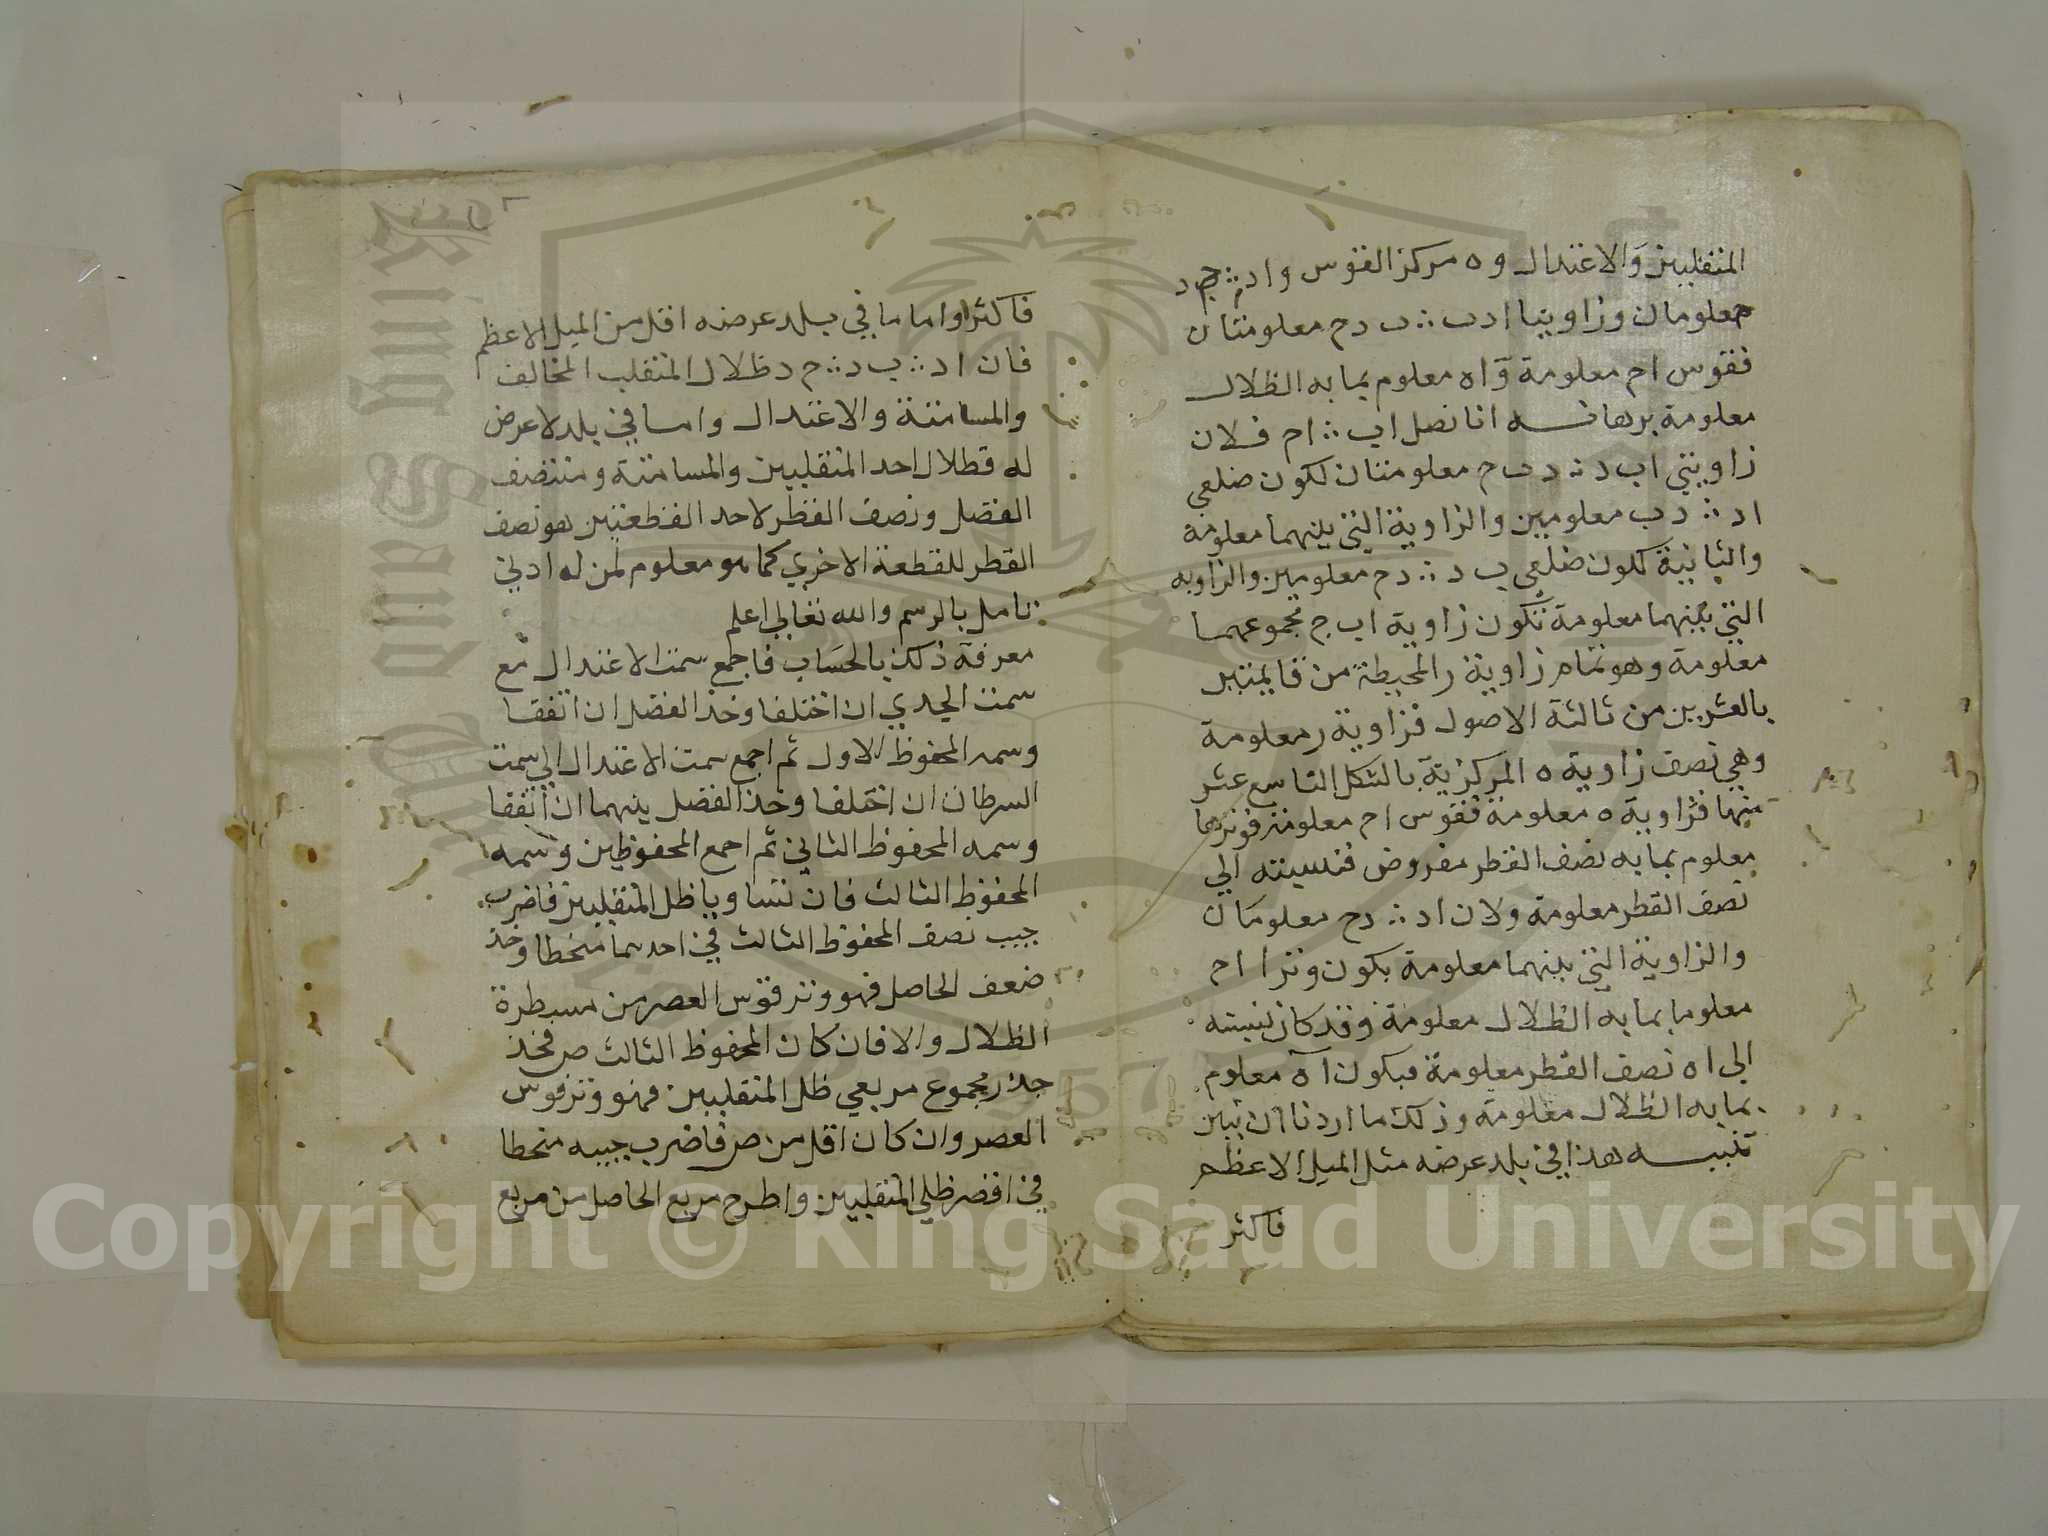 المنقلبين والاعتدال و ه مركز القوس و اد ∴ ح د
معلومان وزاويتا ادب ∴ ب دح معلومتان
فقوس اح معلومة و اه معلوم بما به الظلال
معلومة برهانه انا نصل اب ∴ اح فلان
زاويتي اب د ∴ د ب ح معلومتان لكون ضلعي
اد ∴ دب معلومين والزاوية التي بينهما معلومة
والثانية لكون ضلعي ب د ∴ دح معلومين والزاويه
التي بينهما معلومة تكون زاوية اب ج مجموعهما
معلومة وهو تمام زاوية ر المحيطة من قايمتين
بالعشرين من ثالثة الاصول فزاوية ر معلومة
وهي نصف زاوية ه المركزية بالشكل التاسع عشر
منها فزاوية ه معلومة فقوس اح معلومة فوترها
معلوم بما به نصف القطر مفروض فنسبته الي
نصف القطر معلومة ولان اد ∴ دح معلومان
والزاوية التي بينهما معلومة يكون وتر ا اح
معلوما بما به الظلال معلومة وقد كان نسبته
الي اه نصف القطر معلومة فيكون آه معلوم
بما به الظلال معلومة وذلك ما اردنا ان نبين
تنبيه هذا في بلد عرضه مثل الميل الاعظم
فاكثر
فاكثر واما ما في بلد عرضه اقل من الميل الاعظم
فان اد ∴ ب د ∴ ح د ظلال المنقلب المخالف
والمسامتة والاعتدال واما في بلد لا عرض
له فظلال احد المنقلبين والمسامتة ومنتصف
الفضل ونصف القطر لاحد القطعتين هو نصف
القطر للقطعة الاخري كما هو معلوم لمن له ادني
تامل بالرسم والله تعالي اعلم
معرفة ذلك بالحساب فاجمع سمت الاعتدال مع
سمت الجدي ان اختلفا وخذ الفضل ان اتفقا
وسمه المحفوظ الاول ثم اجمع سمت الاعتدال الي سمت
السرطان ان اختلفا وخذ الفضل بينهما ان اتفقا
وسمه المحفوظ الثاني ثم اجمع المحفوظين وسمه
المحفوظ الثالث فان تساويا ظل المنقلبين فاضرب
جيب نصف المحفوظ الثالث في احدهما منحطا وخذ
ضعف الحاصل فهو وتر قوس العصر من مسطرة
الظلال والا فان كان المحفوظ الثالث ص فخذ
جذر مجموع مربعي ظل المنقلبين فهو وتر قوس
العصر وان كان اقل من ص فاضرب جيبه منحطا
في اقصر ظلي المنقلبين واطرح مربع الحاصل من مربع
Copyright © King Saud University
1957